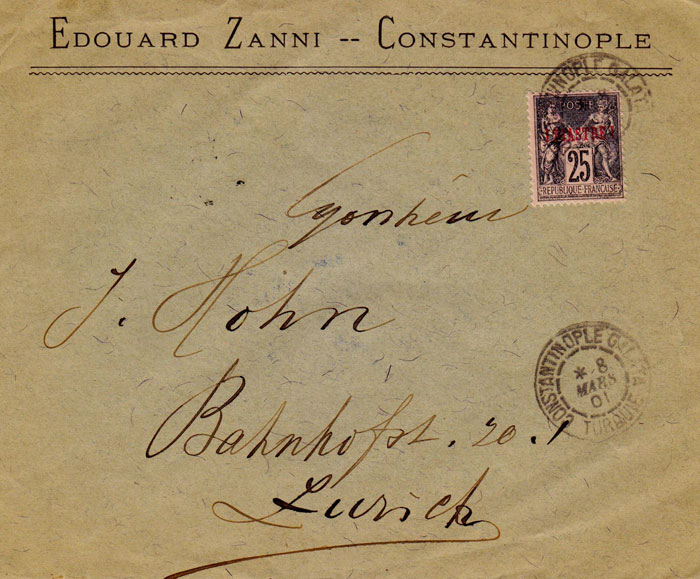 EDOUARD ZANNI -- CONSTANTINOPLE
POSTE
1 PIASTRE 1
25
REPUBLIQUE FRANÇAISE
J. Hohn
Bahnhofst. 20.
Zurich
CONSTANTINOPLE GALATA
* 8
MARS
01
TURQUIE